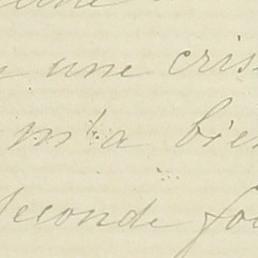 une cris
m'a bien
seconde fo